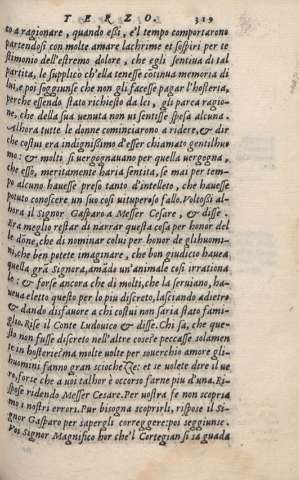 TERZO. 319
co a ragionare, quando essi, e'l tempo comportarono
partendosi con molte amare lachrime et sospiri per te
stimonio dell'estremo dolore, che egli sentiua di tal
partita, le supplicò ch'ella tenesse cōtinua memoria di
lui, e poi soggiunse che non gli facesse pagar l'hosteria,
perche essendo stato richiesto da lei, gli parea ragio-
ne, che della sua uenuta non ui sentisse spesa alcuna.
Alhora tutte le donne cominciarono a ridere, & dir
che costui era indignissimo d'esser chiamato gentilhuo
mo: & molti si uergognauano per quella uergogna,
che esso, meritamente haria sentita, se mai per tem-
po alcuno hauesse preso tanto d'intelleto, che hauesse
potuto conoscere un suo cosi uituperoso fallo. Voltossi al-
hora il Signor Gasparo a Messer Cesare, & disse.
Era meglio restar di narrar questa cosa per honor del
le dōne, che di nominar colui per honor de gli huomi-
ni, che ben potete imaginare, che bon giudicio hauea
quella grā Signora, amādo un'animale cosi irrationa
le: & forse ancora che di molti, che la seruiano, ha-
ueua eletto questo per lo piu discreto, lasciando adietro
& dando disfauore a chi costui non saria stato fami-
glio. Rise il Conte Ludouico & disse. Chi sa, che que-
sto non fusse discreto nell'altre cose e peccasse solamen
te in hosterie? ma molte uolte per souerchio amore gli
huomini fanno gran sciochezze: et se uolete dire il ue
ro, forse che a uoi talhor è occorso farne piu d'una. Ri-
spose ridendo Messer Cesare. Per uostra fe non scopria
mo i nostri errori. Pur bisogna scoprirli, rispose il Si-
gnor Gasparo per sapergli correggere: poi seggiunse.
Voi Signor Magnifico hor che'l Cortegian si sa guada